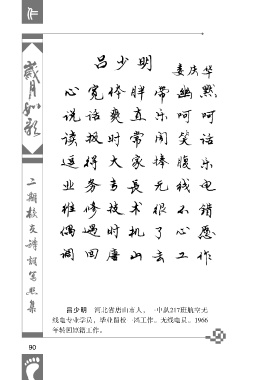 作
岁月如歌
二期校友诗词写照集
吕少明
娄庆华
心宽体胖带幽默
说话爽直乐呵呵
读报时常闹笑话
逗得大家捧腹乐
业务专长无线电
维修技术很不错
偶遇时机了心愿
调回唐山去工作
吕少明 河北省唐山市人，一中队217班航空无
线电专业学员，毕业留校一训工作。无线电员。1966
年转回原籍工作。
90